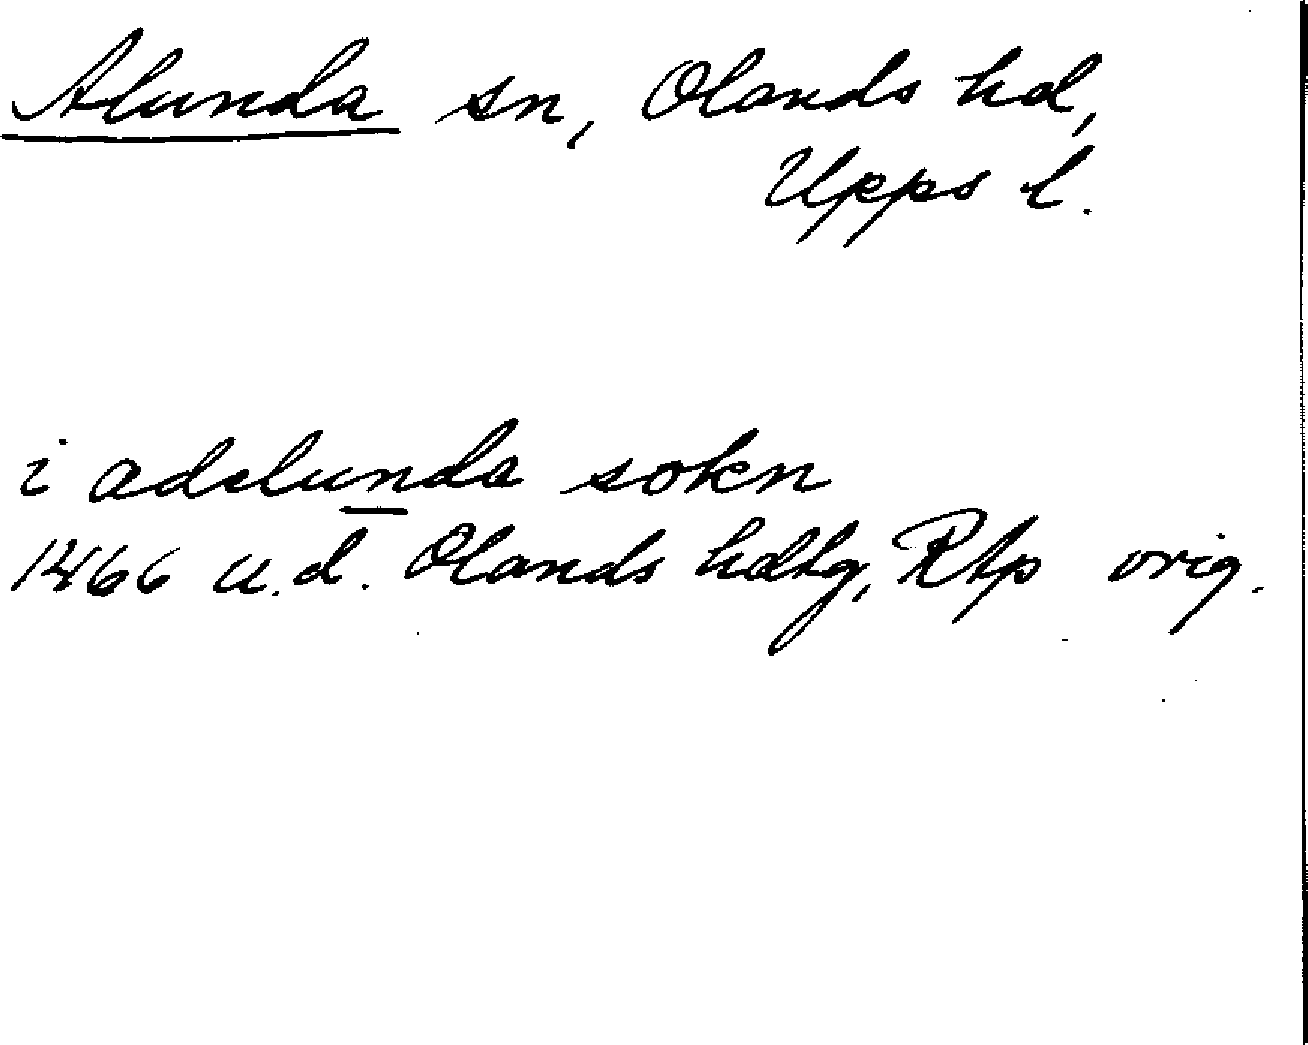 Alunda sn, Olands hd,
Upps l.
i adelunda sokn
1466 u.d. Olands hdtg, RAp orig.